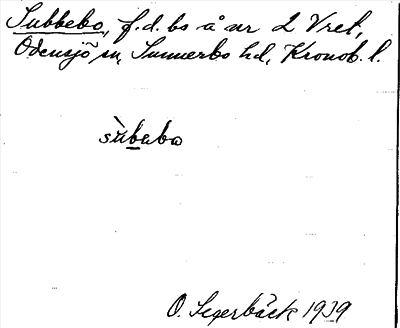 Subbebo, f.d. bs å nr 2 Vret,
Odensjö sn, Sunnerbo hd, Kronob. l.
sùbebo
O. Segerbäck 1939